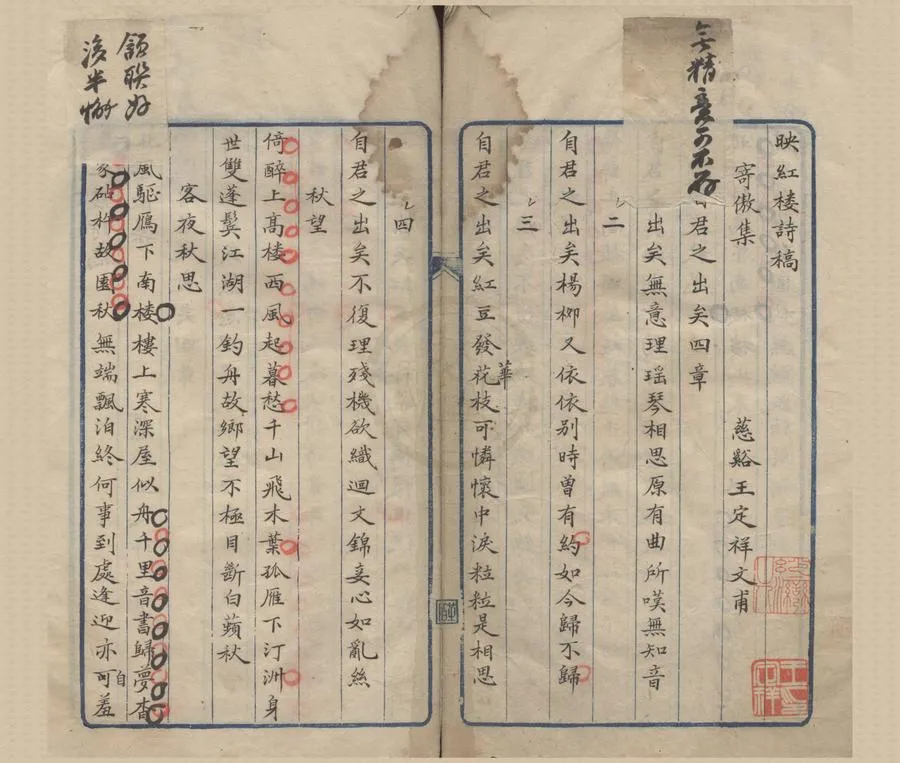 映紅楼詩稿
寄傲集
慈谿王定祥文甫
自君之出矣四章
出矣無意理瑶琴相思原有曲所嘆無知音
二
自君之出矣楊柳又依依别時曾有約如今歸不歸
三
自君之出矣紅豆發花枝可憐懷中淚粒粒是相思
華
四
自君之出矣不復理殘機欲織迴文錦妾心如亂絲
秋望
倚醉上高楼西風起暮愁千山飛木葉孤雁下汀洲身
世雙蓬鬓江湖一釣舟故鄉望不極目斷白蘋秋
客夜秋思
風驅鴈下南楼樓上寒深屋似舟千里音書歸夢杳
家砧杵故園秋無端飄泊終何事到處逢迎亦可羞
自
無精意可不存
頷聯好
後半懈